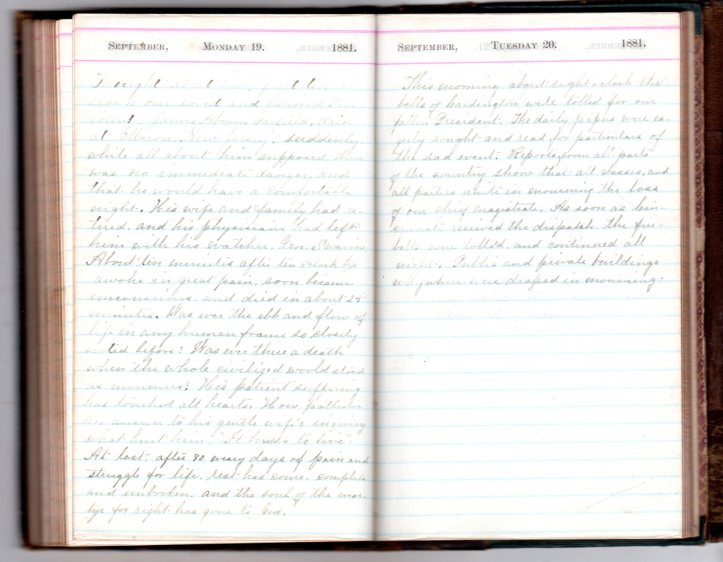 September, Monday 19. 1881.
To night
our loved and
James Abram Garfield, died
at Elberon, New Jersey, suddenly
while all about him supposed there
was no immediate danger, and
that he would have a comfortable
night. His wife and family had re-
tired, and his physicians had left
him with his watcher, Gen. Swaim
About ten minutes after ten o'clock he
awoke in great pain, soon became
unconscious, and died in about 25
minutes. Was ever the ebb and flow of
life in any human frame so closely
noted before? Was ever there a death
when the whole civilized world stood
as mourners? His patient suffering
has touched all hearts. How pathetic
his answer to his gentle wife's inquiry
what hurt him "It hurts to live"
At last, after 80 weary days of pain and
struggle for life, rest has come, complete
and unbroken, and the soul of the mar-
tyr for right has gone to God.
September, Tuesday 20. 1881.
This morning about eight o'clock the
bells of were tolled for our
fallen President. The daily papers were ea-
gerly sought and read for particulars of
the sad event. Reports from all parts
of the country show that all classes, and
all parties unite in mourning the loss
of our chief magistrate. As soon as Cin-
cinnati received the dispatch the fire-
bells were tolled, and continued all
night. Public and private buildings
everywhere were draped in mourning.